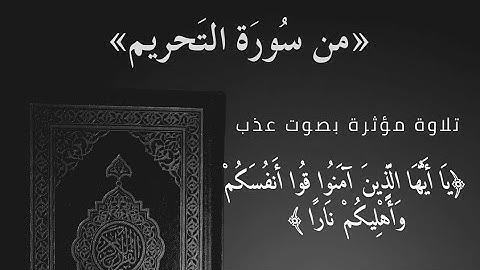 «من سُورَة التَحريم»
تلاوة مؤثرة بصوت عذب
﴿يَا أَيُّهَا الَّذِينَ آمَنُوا قُوا أَنفُسَكُمْ
وَأَهْلِيكُمْ نَارًا ﴾
القرآن الكريم